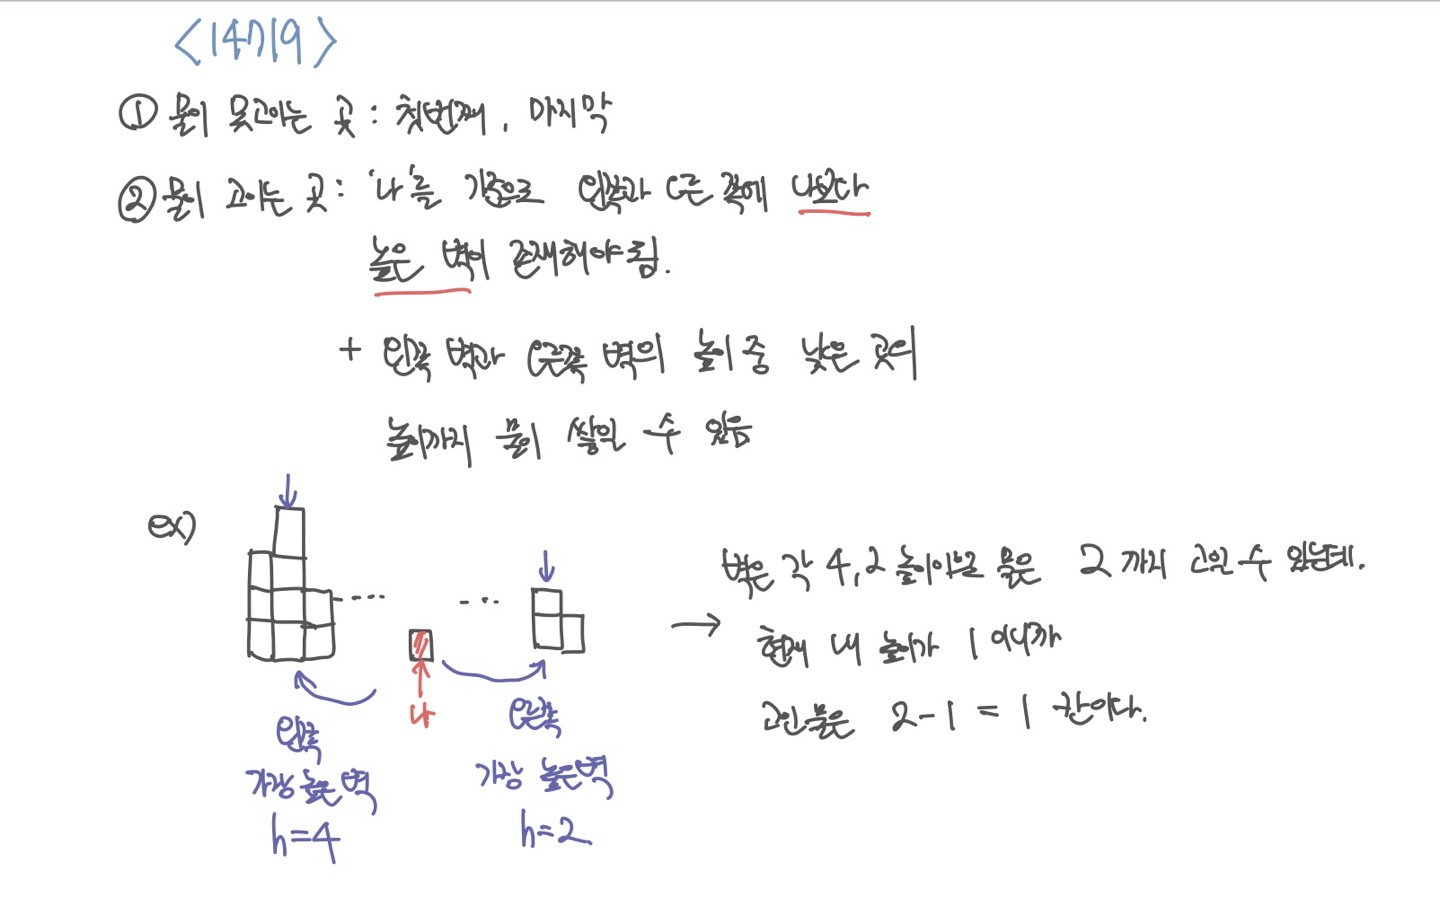 <14719>
① 물이 못고이는 곳 : 첫번째, 마지막
② 물이 고이는 곳 : '나'를 기준으로 왼쪽과 오른쪽에 나보다
높은 벽이 존재해야됨.
+ 왼쪽 벽과 오른쪽 벽의 높이 중 낮은 곳의
높이까지 물이 쌓일 수 있음
ex)
.... ...
나
왼쪽
가장 높은벽
h=4
오른쪽
가장 높은벽
h=2
→ 벽은 각 4,2 높이이므로 물은 2까지 고일 수 있는데.
현재 내 높이가 1이니까
고인물은 2-1 = 1 칸이다.